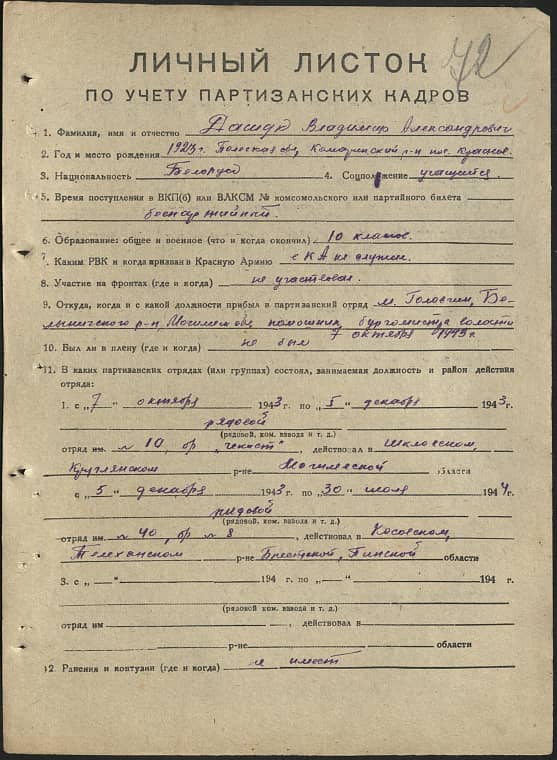 72
ЛИЧНЫЙ ЛИСТОК
ПО УЧЕТУ ПАРТИЗАНСКИХ КАДРОВ
1. Фамилия, имя и отчество Дашук Владимир Александрович
2. Год и место рождения 1923г. Полеская обл, р-н пос. Красное.
3. Национальность Белорус 4. Соцположение учащийся.
5. Время поступления в ВКП(б) или ВЛКСМ № комсомольского или партийного билета
беспартийный.
6. Образование: общее и военное (что и когда окончил) 10 классов.
7. Каким РВК и когда призван в Красную Армию в КА не служил.
8. Участие на фронтах (где и когда) не участвовал.
9. Откуда, когда и с какой должности прибыл в партизанский отряд м. Головчин, Бе-
лыничского р-н, Могилевск обл, помошник бургомистра волости
7 октября 1943г
10. Был ли в плену (где и когда) не был
11. В каких партизанских отрядах (или группах) состоял, занимаемая должность и район действия
отряда:
1. с „7“ октября 1943 г. по „5“ декабря 1943 г.
рядовой
(рядовой, ком. взвода и т. д.)
отряд им. № 10, бр „Чекист“, действовал в Шкловском,
Круглянском р-не Могилевской области
с „5“ декабря 1943 г. по „30“ июля 1944 г.
рядовой
(рядовой, ком. взвода и т. д.)
отряд им. № 40, бр № 8, действовал в Косовском,
Телеханском р-не Брестской, Пинской области
3. с „—“ 194 г. по „—“ 194 г.
(рядовой ком. взвода и т. д.)
отряд им , действовал в
р-не области
12. Ранения и контузии (где и когда) не имеет